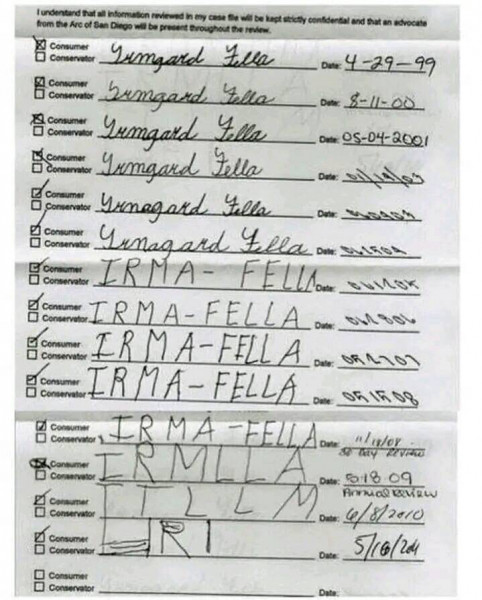 I understand that all information reviewed in my case file will be kept strictly confidential and that an advocate
from the Arc of San Diego will be present throughout the review.
Consumer
Conservator Yrmgard Fella Date: 4-29-99
Consumer
Conservator Yrmgard Fella Date: 8-11-00
Consumer
Conservator Yrmgard Fella Date: 05-04-2001
Consumer
Conservator Yrmgard Fella Date:
Consumer
Conservator Yrnagard Fella Date:
Consumer
Conservator Yrnagard Fella Date:
Consumer
Conservator IRMA- FELLA Date:
Consumer
Conservator IRMA-FELLA Date:
Consumer
Conservator IRMA-FELLA Date:
Consumer
Conservator IRMA-FELLA Date: 051508
Consumer
Conservator IRMA-FELLA Date: 11/18/08
30 Day Review
Consumer
Conservator IRMLLA Date: 51809
Annual Review
Consumer
Conservator ITLLM Date: 6/8/2010
Consumer
Conservator RI Date: 5/16/2011
Consumer
Conservator Date: